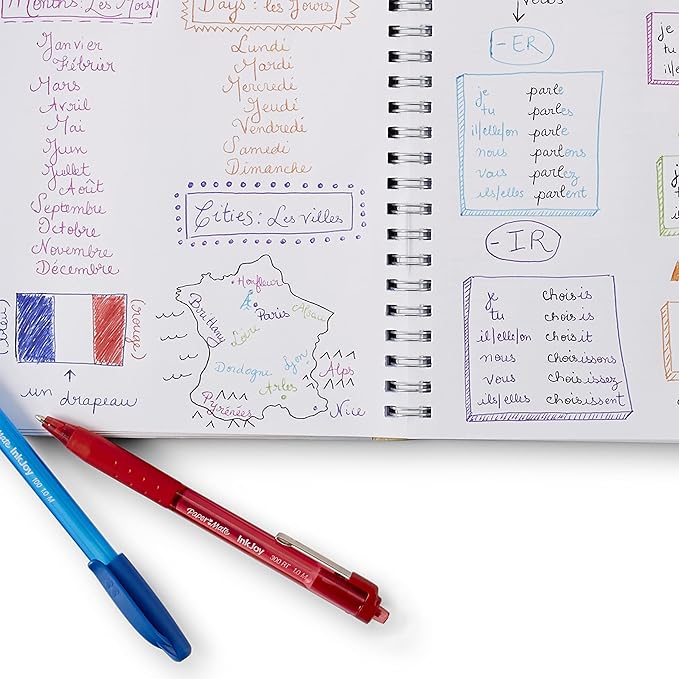 Months: Les Mois
Janvier
Fébrier
Mars
Avril
Mai
Juin
Juillet
Août
Septembre
Octobre
Novembre
Décembre
Days: les Jours
Lundi
Mardi
Mercredi
Jeudi
Vendredi
Samedi
Dimanche
Cities: Les villes
(bleu)
(rouge)
un drapeau
Honfleur
Paris
Brittany
Alsace
Loire
Dordogne
Lyon
Alps
Arles
Pyrénées
Nice
vous
-ER
je parle
tu parles
il/elle/on parle
nous parlons
vous parlez
ils/elles parlent
-IR
je chois·is
tu chois is
il/elle/on chois it
nous chois issons
vous chois issez
ils/elles choisissent
je
tu
il/el
je
Paper Mate InkJoy 100 1.0 M
Paper Mate InkJoy 300 RT 1.0 M